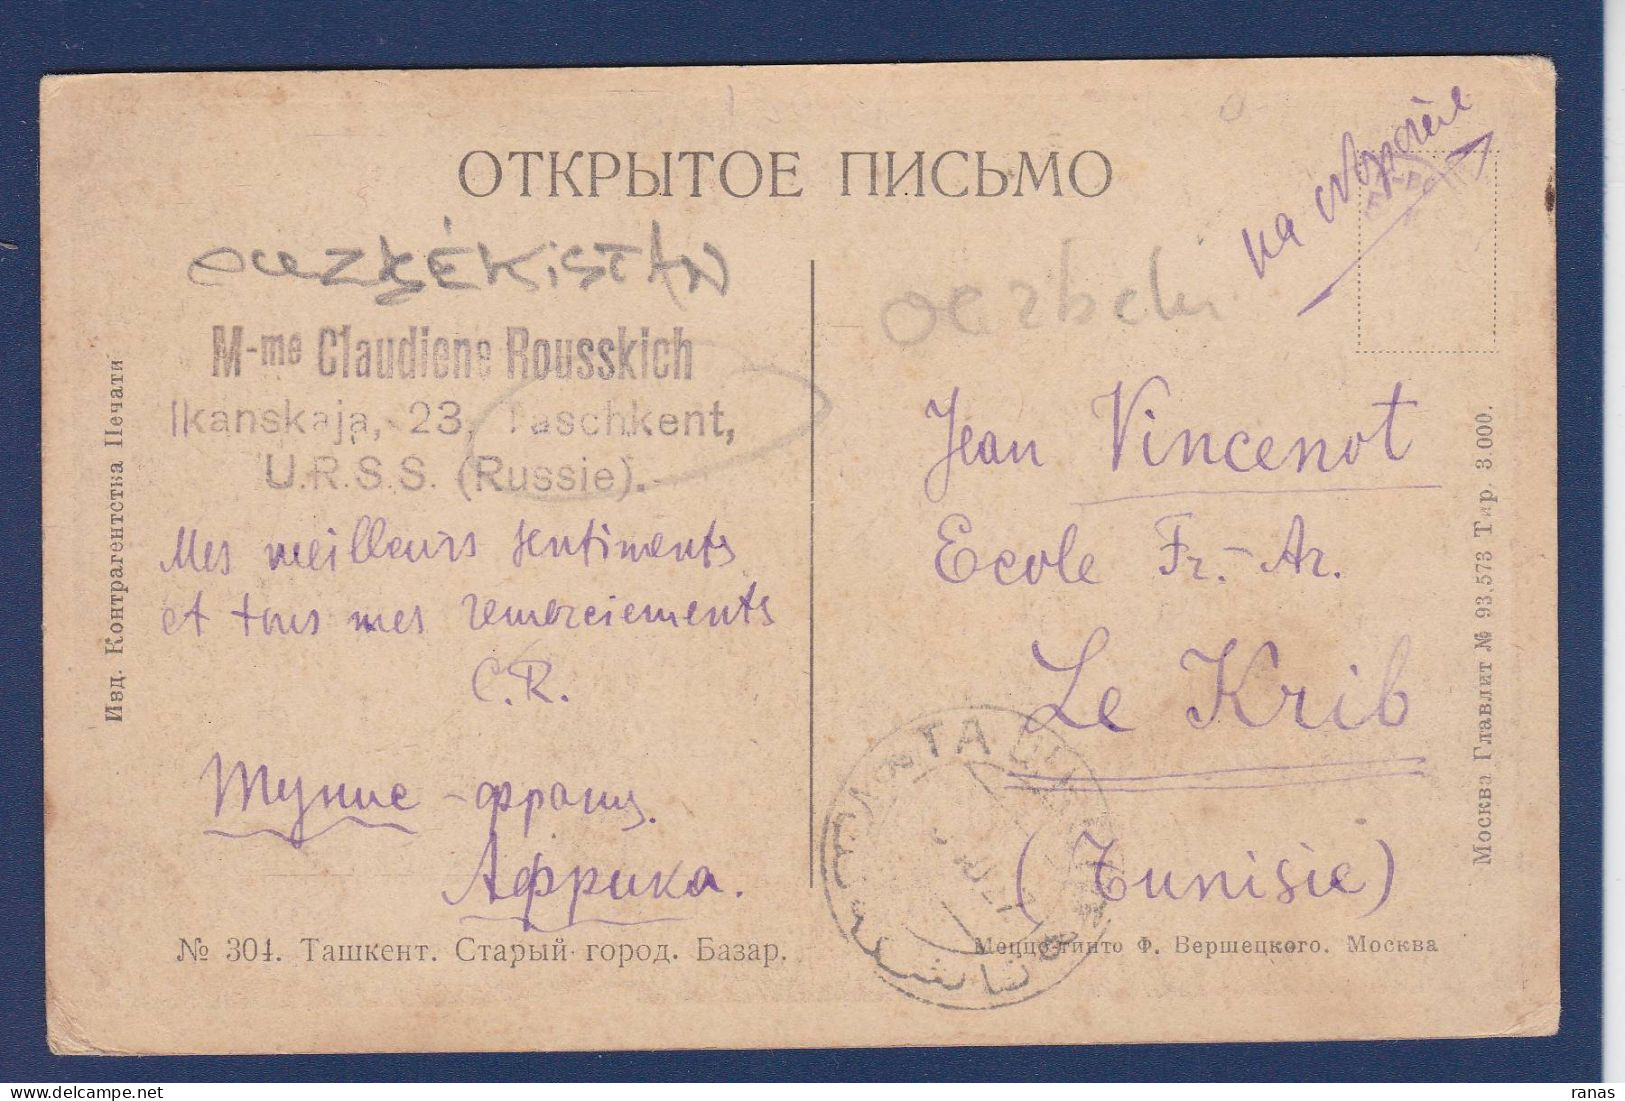 ОТКРЫТОЕ ПИСЬМО
на обороте
OUZBÉKISTAN
ouzbeki
M-me Claudiene Rousskich
Ikanskaja, 23, Taschkent,
U.R.S.S. (Russie).
Mes meilleurs sentiments
et tous mes remerciements
C.R.
Тунис - франц.
Африка.
Jean Vincenot
Ecole Fr.-Ar.
Le Krib
(Tunisie)
№ 304. Ташкент. Старый город. Базар.
Меццо-тинто Ф. Вершецкого. Москва
Изд. Контрагентства Печати
Москва Главлит № 93.573 Тир. 3.000.
ranas